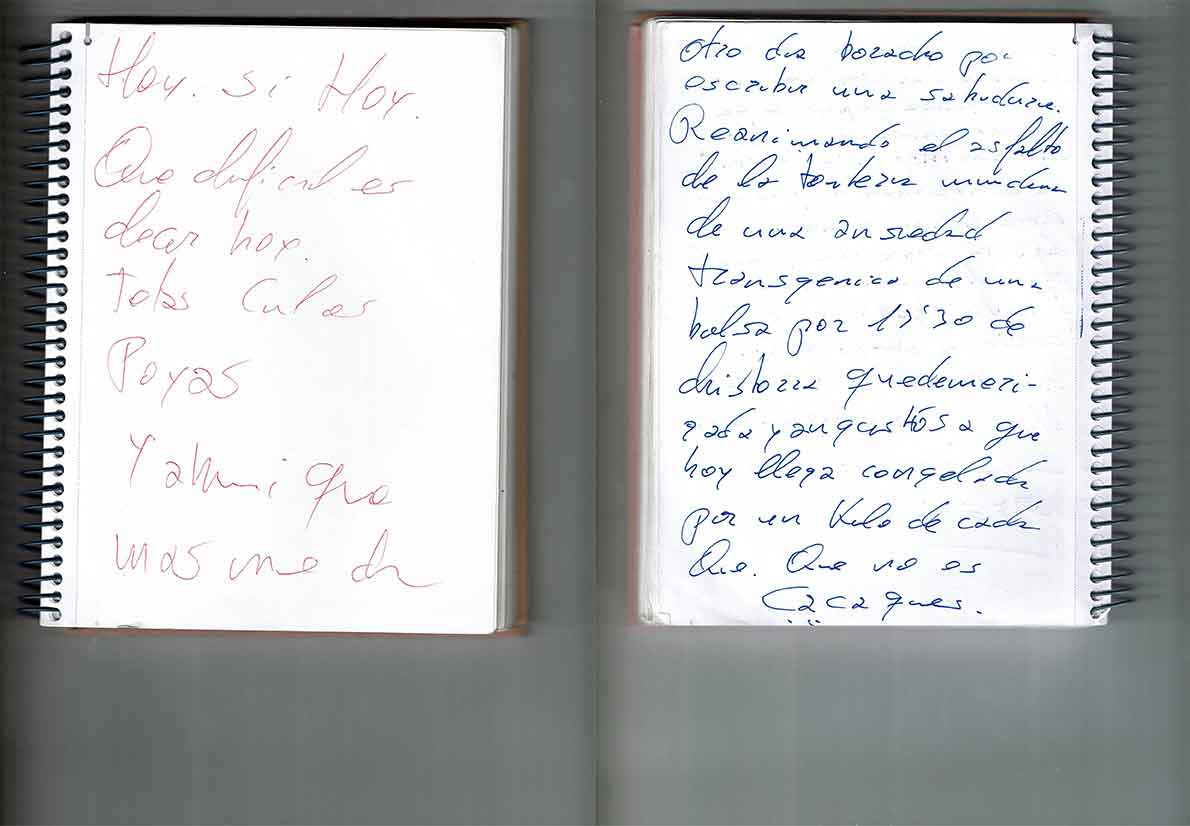 Hoy. si Hoy.
Que dificil es
decir hoy.
Polas
Poyas
Y a mi que
mas me da
otro dia boracho por
escribir una sabiduria.
Reanimando el asfalto
de la tonteria mundana
de una ansiedad
transgenica de una
bolsa por 17'30 de
chistorra
y angustiosa que
hoy llega congelada
por un kilo de cada
Que. Que no es
Cacaques.